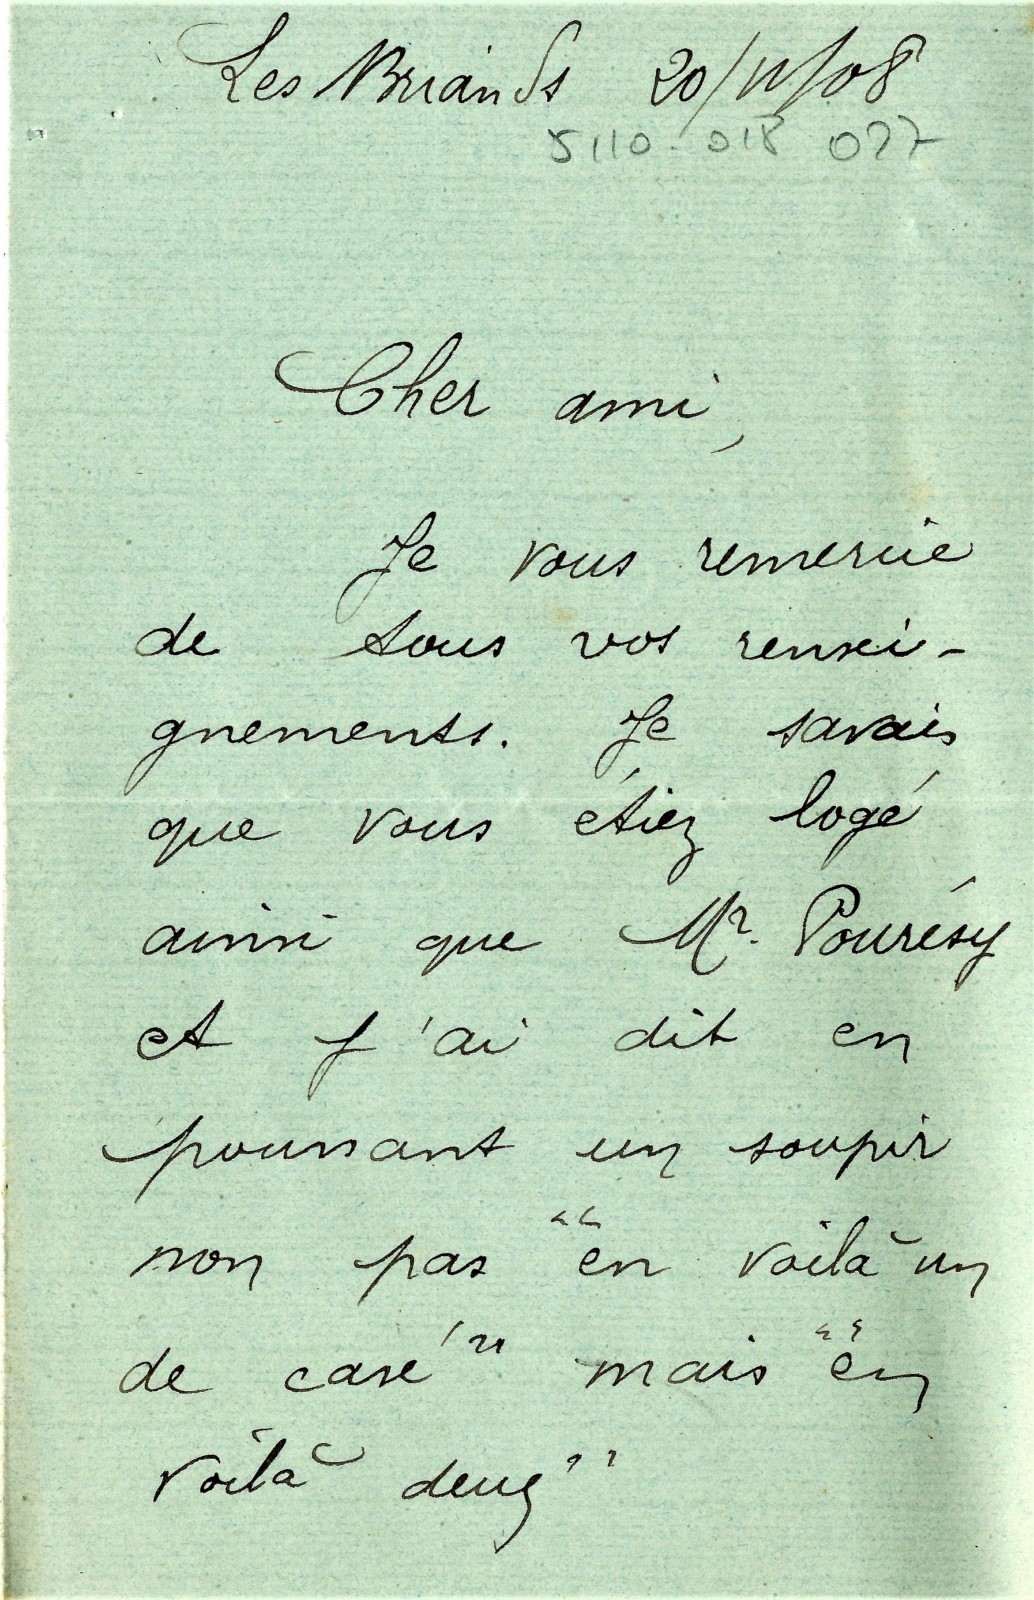 Les Briands 20/11/08
5110-018 077
Cher ami,
Je vous remercie
de tous vos rensei-
gnements. Je savais
que vous étiez logé
ainsi que Mr. Pourésy
et j'ai dit en
poussant un soupir
non pas "en voilà un
de casé" mais "en
voilà deux"